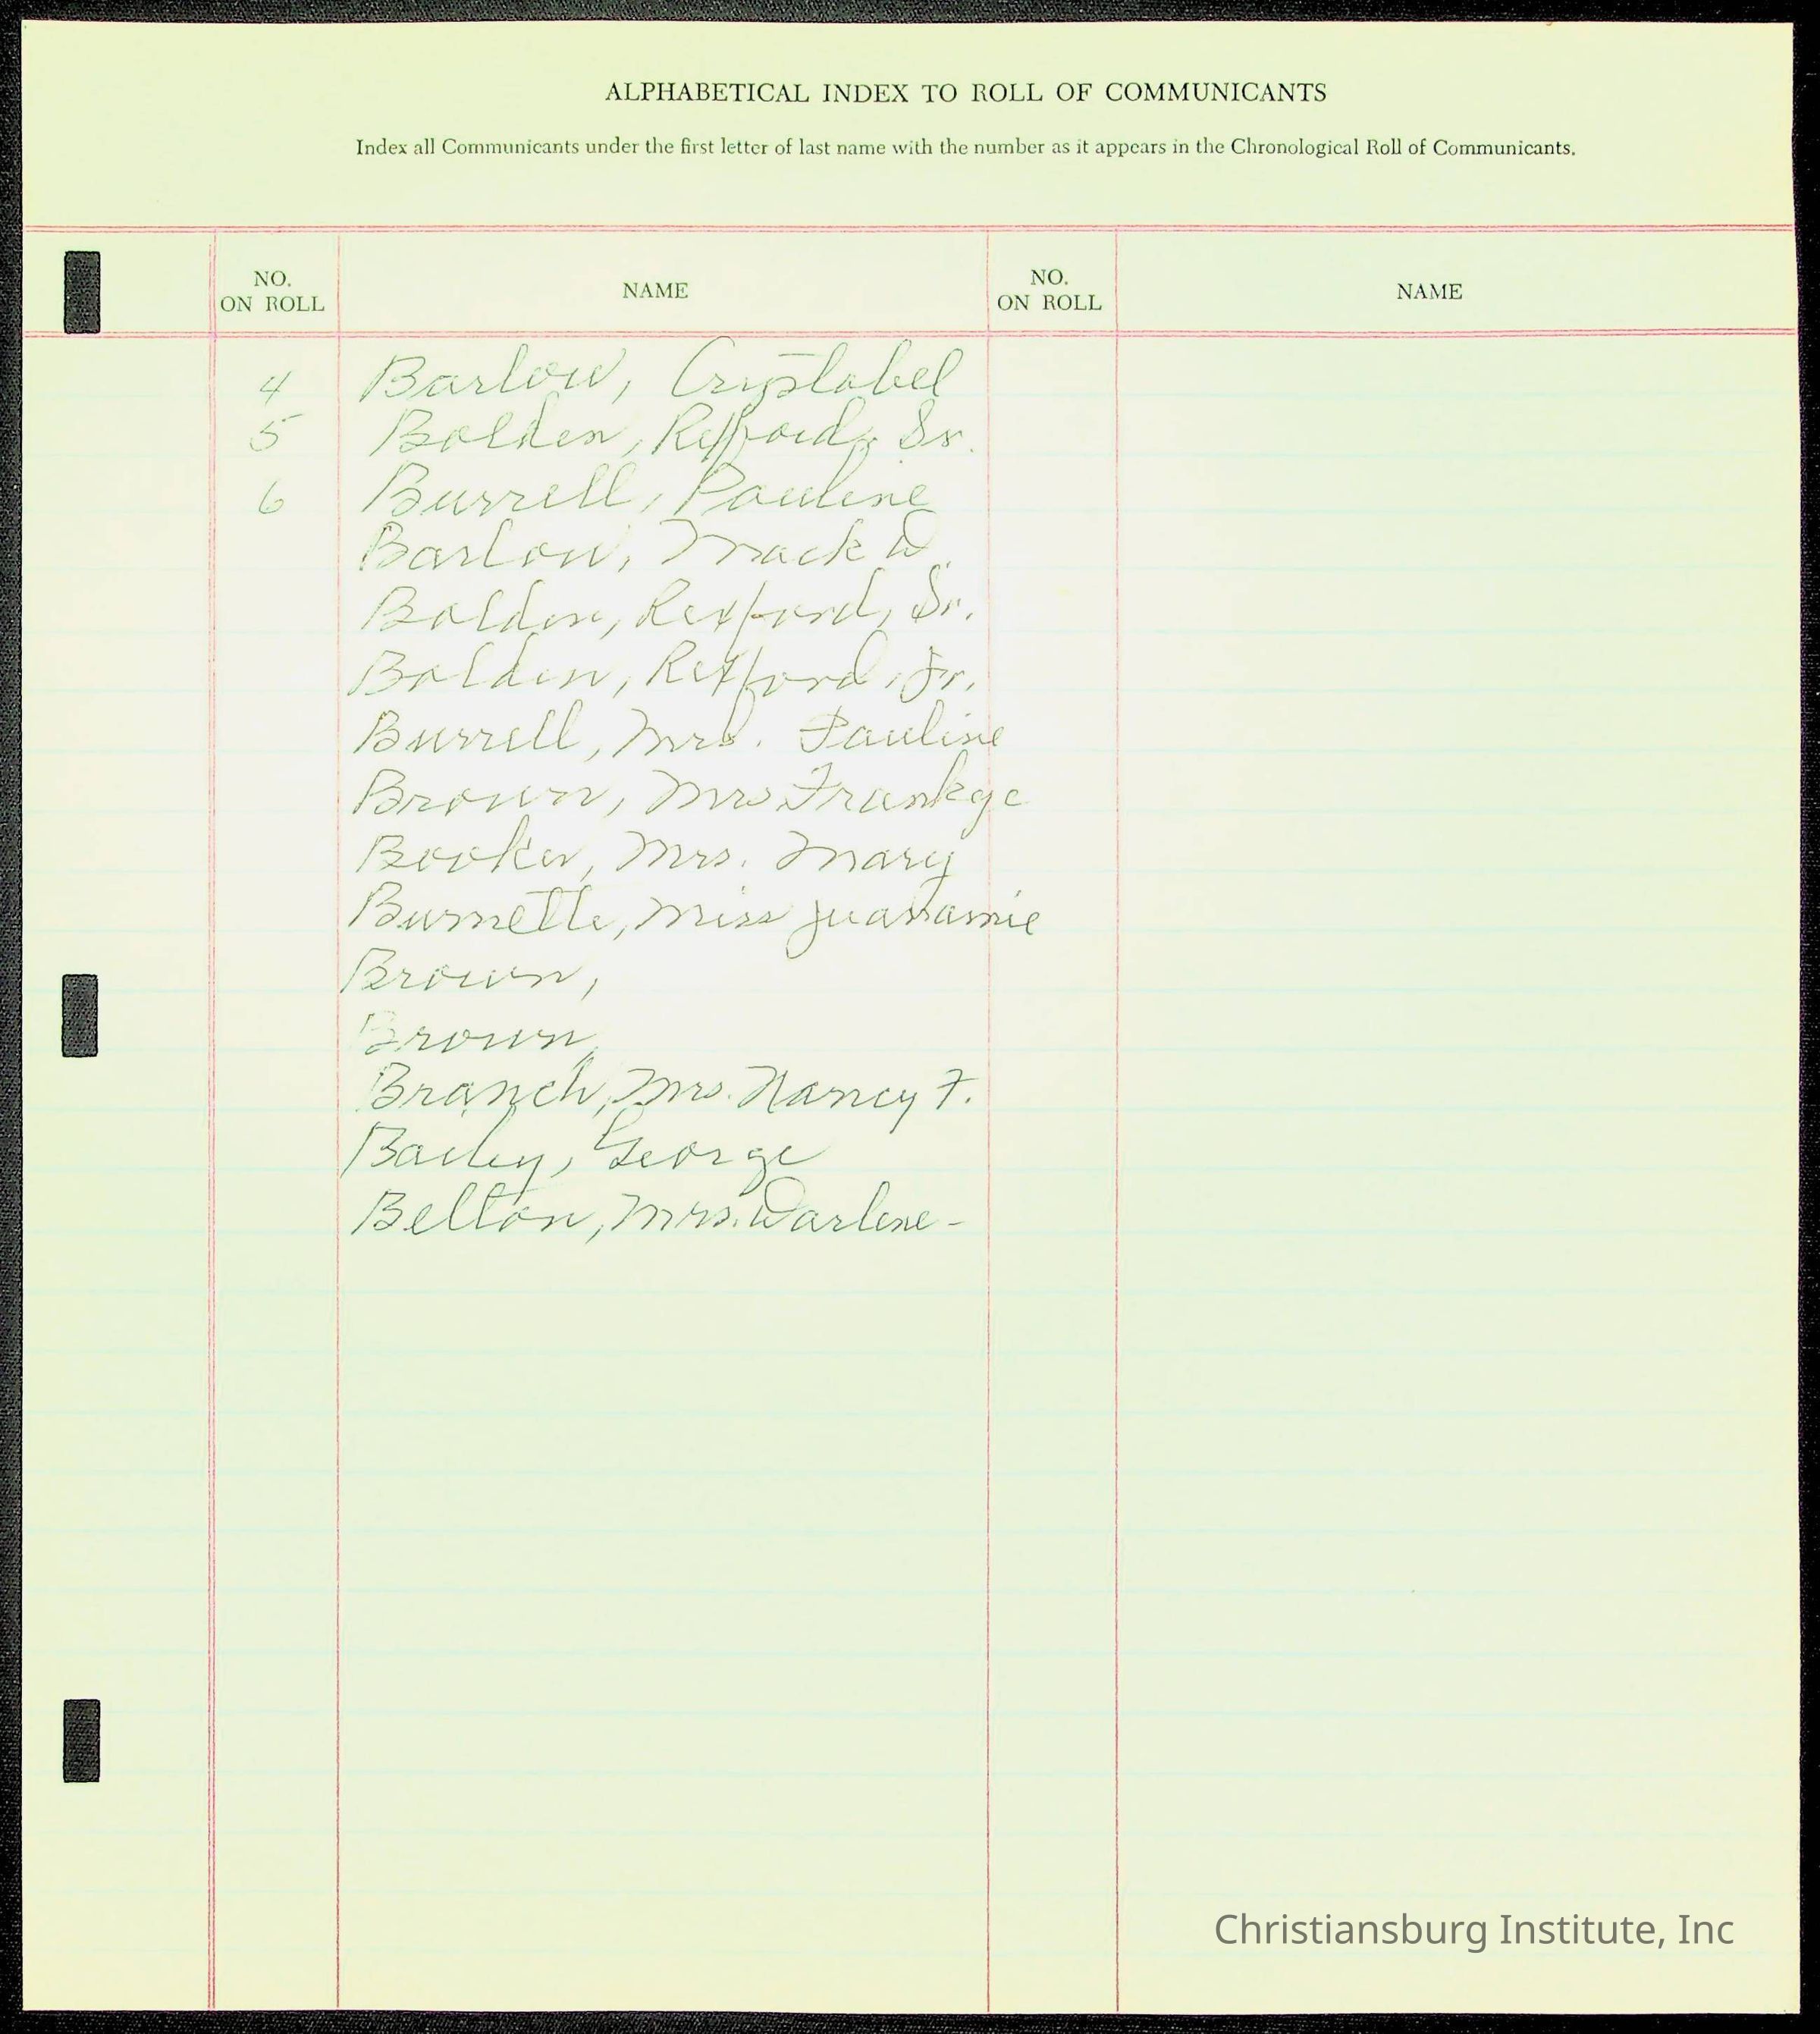 ALPHABETICAL INDEX TO ROLL OF COMMUNICANTS
Index all Communicants under the first letter of last name with the number as it appears in the Chronological Roll of Communicants.
NO. ON ROLL NAME NO. ON ROLL NAME
4 Barlow, Crystabel
5 Bolden, Rexford, Sr.
6 Burrell, Pauline
Barlow, Mack D.
Bolden, Rexford, Sr.
Bolden, Rexford, Jr.
Burrell, Mrs. Pauline
Brown, Mrs
Booker, Mrs. Mary
Burnette, Miss
Brown,
Brown,
Branch, Mrs. Nancy F.
Bailey, George
Belton, Mrs. Darlene-
Christiansburg Institute, Inc